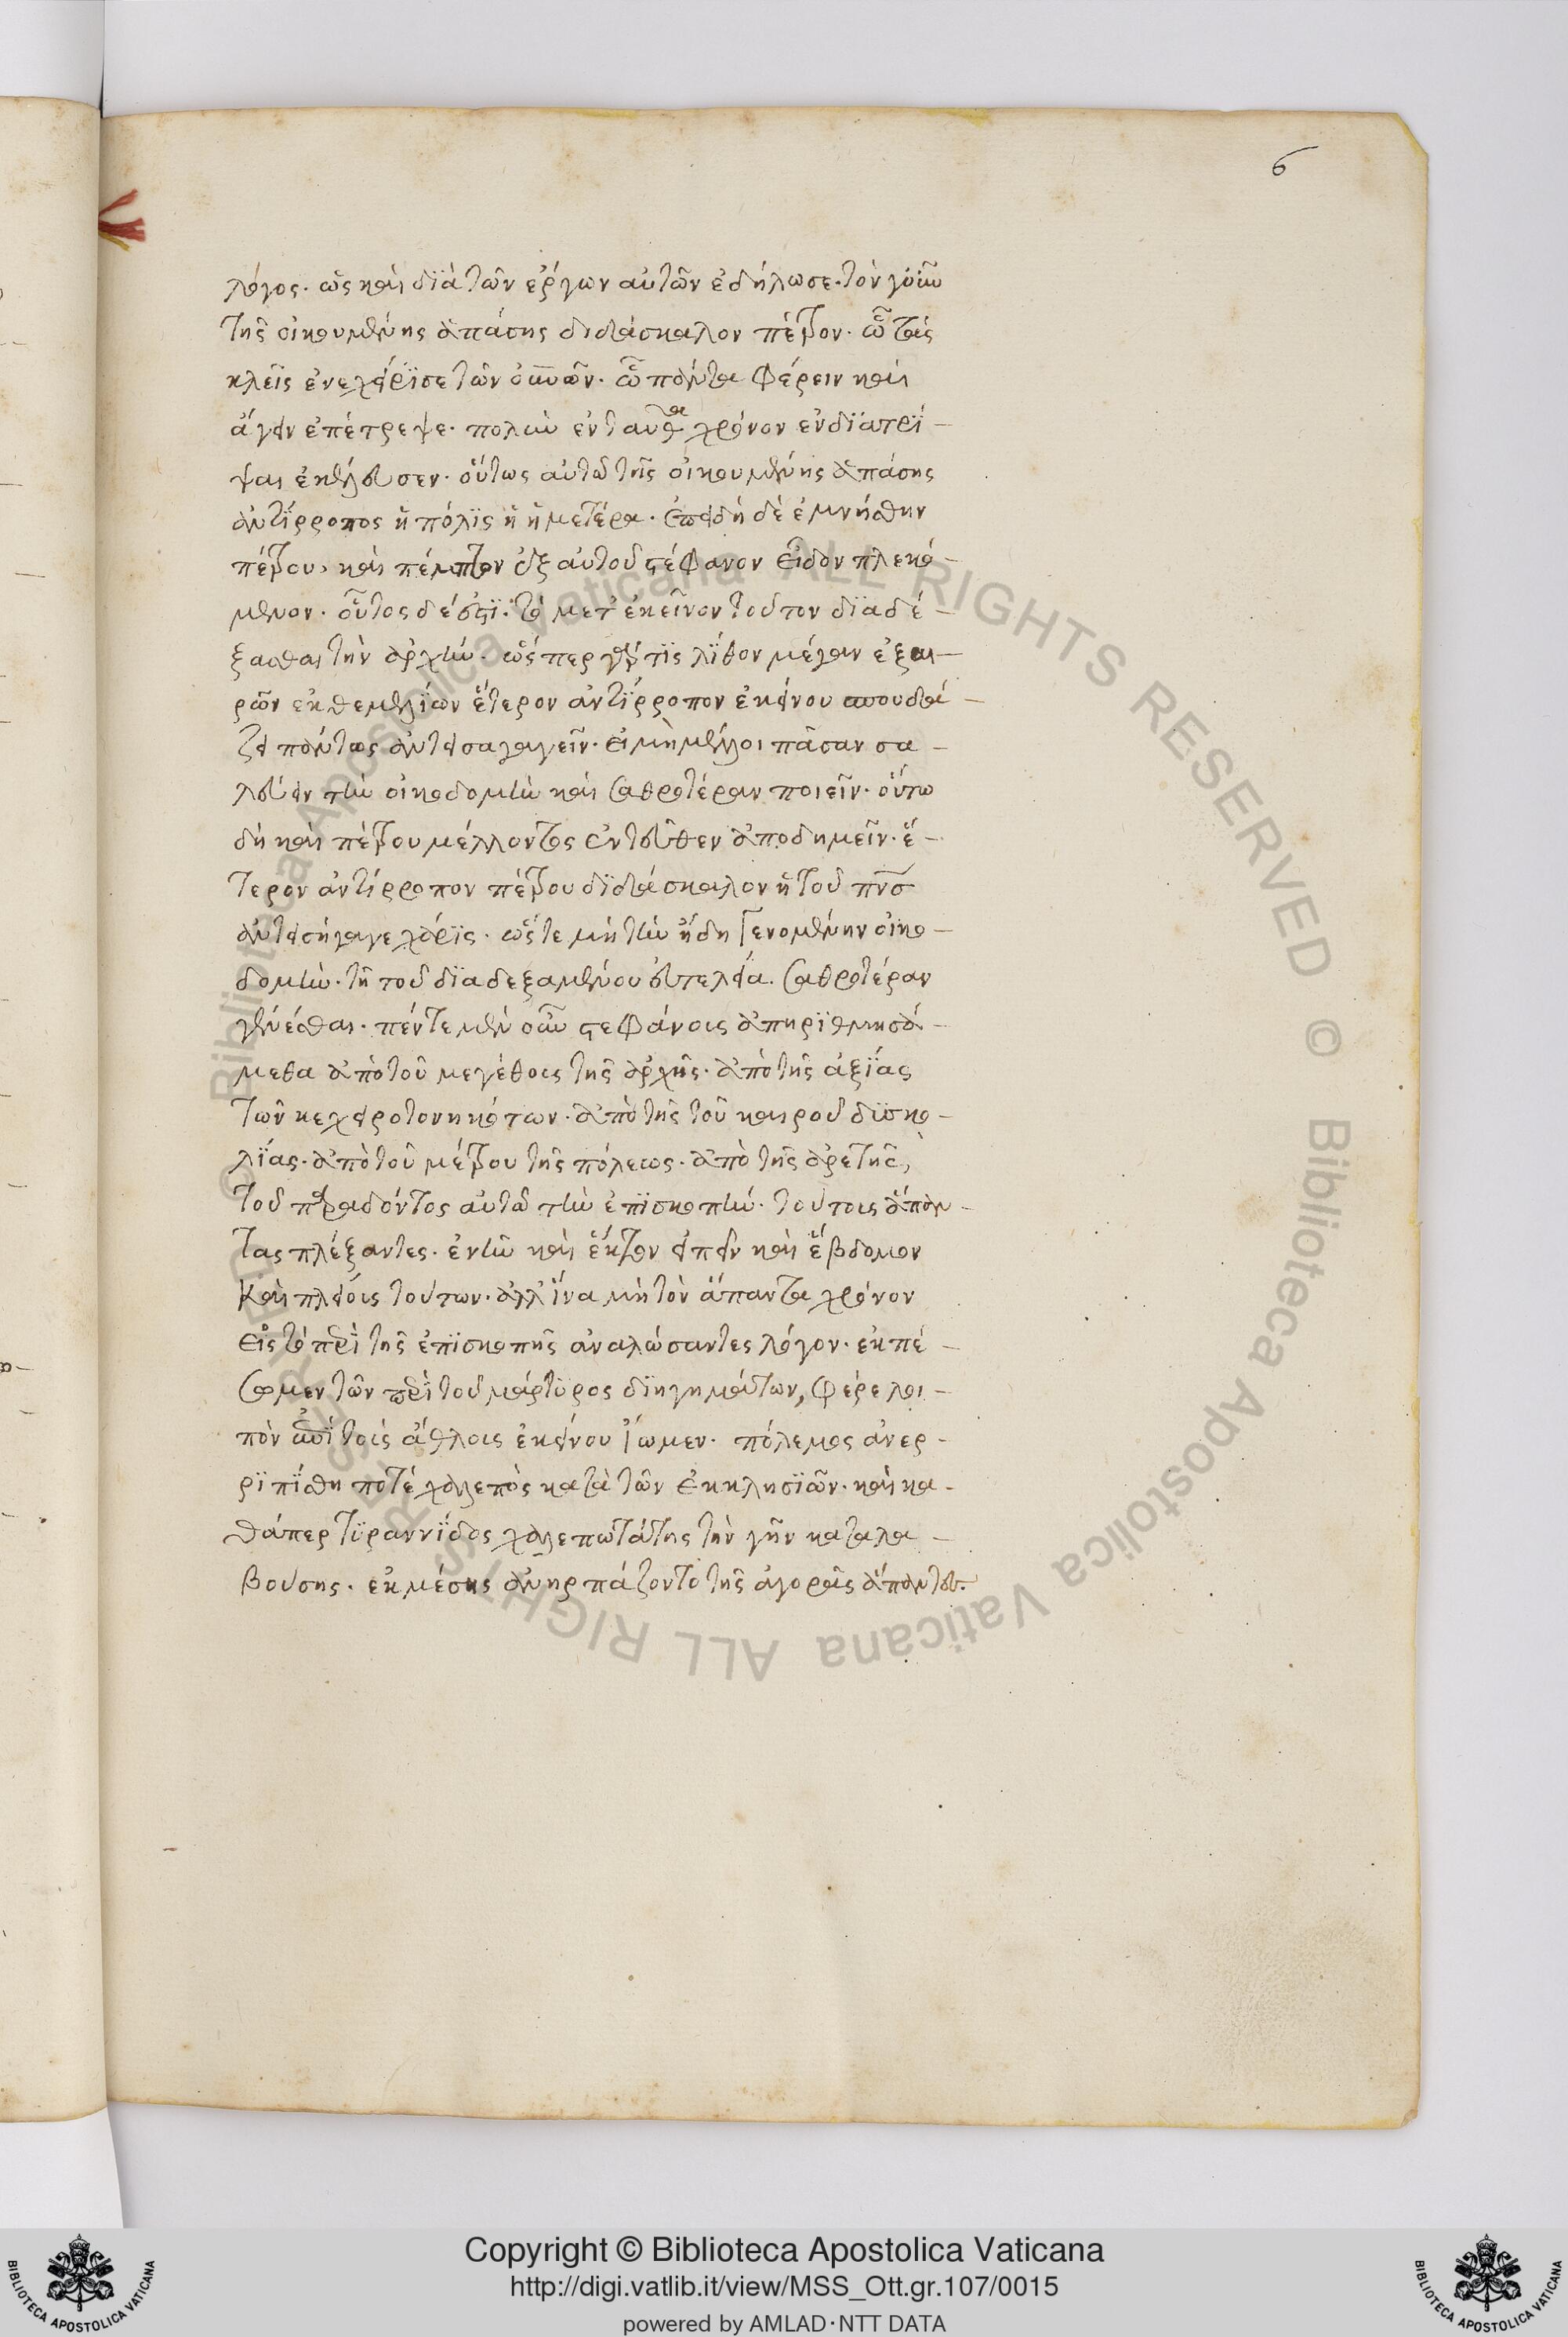 6
λόγος. ὡς καὶ δϊὰ τῶν ἔργων αὐτῶν ἐδήλωσε. τὸν γοῦν
τῆς οἰκουμένης ἁπάσης διδάσκαλον πέτρον. ᾧ τὰς
κλεῖς ἐνεχείρϊσε τῶν οὐνῶν. ᾧ πάντα φέρειν καὶ
ἄγειν ἐπέτρεψε. πολὺν ἐνταῦθα χρόνον ἐνδϊατρῖ-
ψαι ἐκέλευσεν. οὕτως αὐτῶ τῆς οἰκουμένης ἁπάσης
ἀντίρροπος ἡ πόλϊς ἡ ἡμετέρα. ἐπειδὴ δὲ ἐμνήσθην
πέτρου, καὶ πέμπτον ἐξ αὐτοῦ στέφανον εἶδον πλεκό-
μενον. οὗτος δέ ἐστϊ. τὸ μετ' ἐκεῖνον τοῦτον δϊαδέ-
ξασθαι τὴν ἀρχήν. ὥσπερ γὰρ τϊς λίθον μέγαν ἐξαι-
ρῶν ἐκ θεμελίων ἕτερον ἀντίρροπον ἐκείνου σπουδά-
ζει πάντως ἀντεισαγαγεῖν. εἰ μὴ μέλλοι πᾶσαν σα-
λεύειν τὴν οἰκοδομὴν καὶ σαθροτέραν ποιεῖν. οὕτω
δὴ καὶ πέτρου μέλλοντος ἐντεῦθεν ἀποδημεῖν. ἕ-
τερον ἀντίρροπον πέτρου δϊδάσκαλον ἡ τοῦ πνσ
ἀντεισήγαγε χάρϊς. ὥστε μὴ τὴν ἤδη γενομένην οἰκο-
δομὴν. τῆ τοῦ δϊαδεξαμένου εὐτελεία. σαθροτέραν
γενέσθαι. πέντε μὲν οὖν στεφάνους ἀπηρϊθμησά-
μεθα ἀπὸ τοῦ μεγέθους τῆς ἀρχῆς. ἀπὸ τῆς ἀξίας
τῶν κεχειροτονηκότων. ἀπὸ τῆς τοῦ καιροῦ δϋσκο-
λίας. ἀπὸ τοῦ μέτρου τῆς πόλεως. ἀπὸ τῆς ἀρετῆς,
τοῦ παραδόντος αὐτῶ τὴν ἐπϊσκοπήν. τούτοις ἅπαν-
τας πλέξαντες. ἐνῆν καὶ ἕκτον εἰπεῖν καὶ ἕβδομον
καὶ πλείους τούτων. ἀλλ' ἵνα μὴ τὸν ἅπαντα χρόνον
εἰς τὸ περὶ τῆς ἐπϊσκοπῆς ἀναλώσαντες λόγον. ἐκπέ-
σωμεν τῶν περὶ τοῦ μάρτϋρος δϊηγημάτων, φέρε λοι-
πὸν ἐπὶ τοὺς ἄθλους ἐκείνου ἴωμεν. πόλεμος ἀνερ-
ρϊπίσθη ποτὲ χαλεπὸς κατὰ τῶν ἐκκλησϊῶν. καὶ κα-
θάπερ τϋραννίδος χαλεπωτάτης τὴν γῆν καταλα-
βούσης. ἐκ μέσης ἀνηρπάζοντο τῆς ἀγορᾶς ἅπαντες.
Copyright © Biblioteca Apostolica Vaticana
http://digi.vatlib.it/view/MSS_Ott.gr.107/0015
powered by AMLAD·NTT DATA